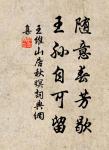 隨意春芳歇
王孫自可留
王維山居秋暝詞典網
喜